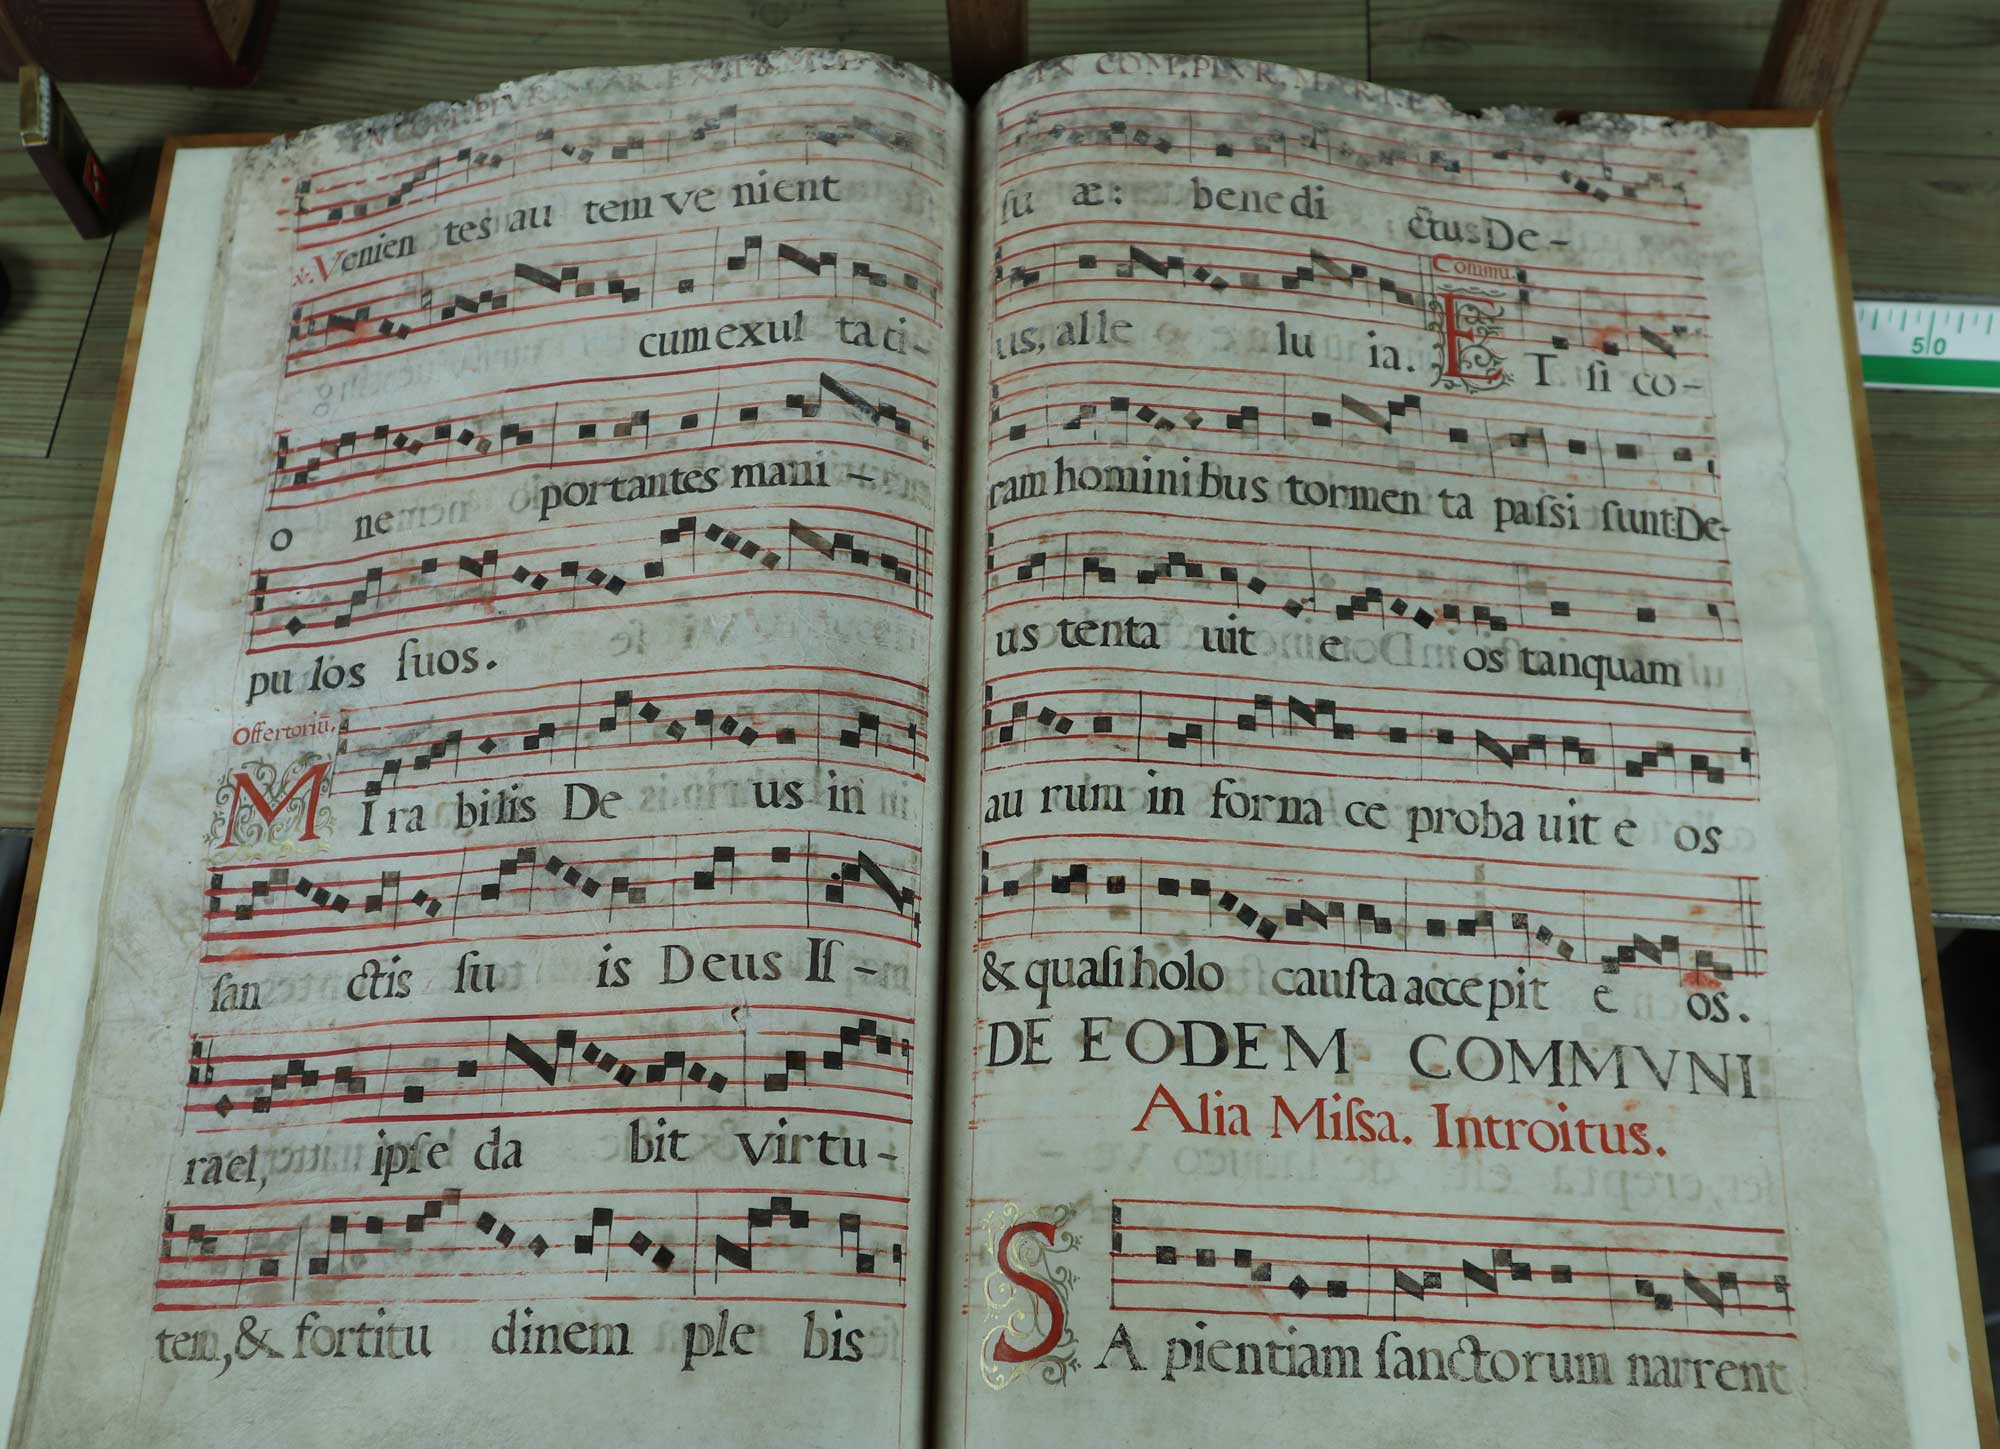 IN COM. PLVR. MAR. EX. T.
℣. Venien tes au tem ve nient
cum exul ta ti-
o nem portantes mani-
pu los ſuos.
Offertoriū.
MIra bilis De us in
ſan ctis ſu is Deus Iſ-
rael, ipſe da bit virtu-
tem, & fortitu dinem ple bis
IN COM. PLVR. MAR. E
ſu æ: benedi ctus De-
us, alle lu ia. Commu. ET ſi co-
ram hominibus tormen ta paſsi ſunt: De-
us tenta uit e os tanquam
au rum in forna ce proba uit e os
& quaſi holo cauſta acce pit e os.
DE EODEM COMMVNI
Alia Miſsa. Introitus.
SA pientiam ſanctorum narrent
50